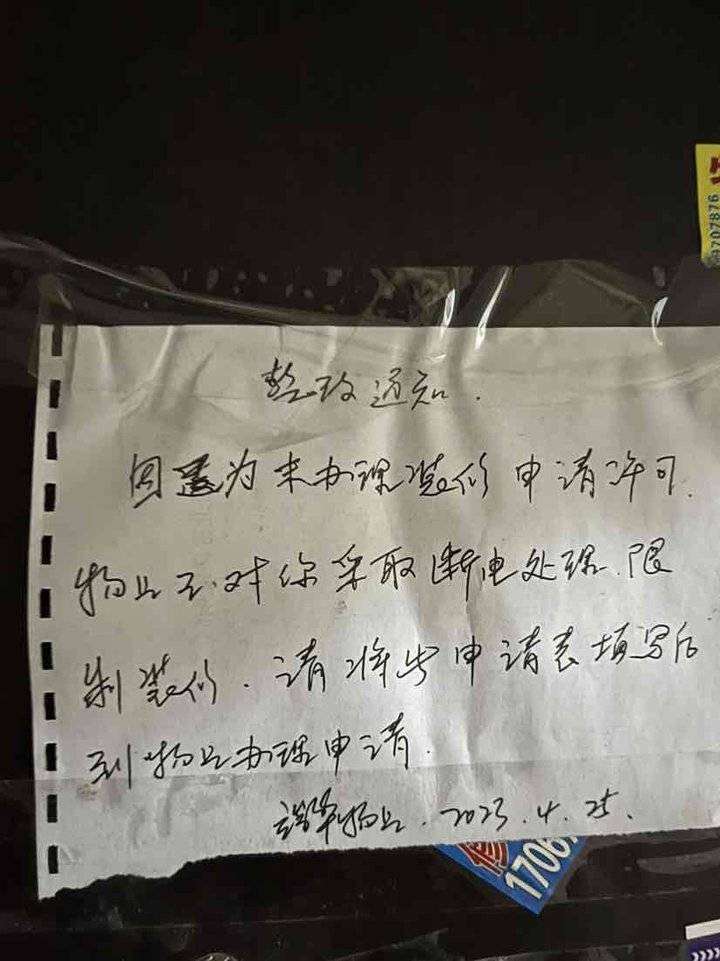 整改通知.
因为未办理装修申请许可.
物业正对你采取断电处理.限
制装修.请将此申请表填写后
到物业办理申请.
物业.2023.4.25.
1707876
1706